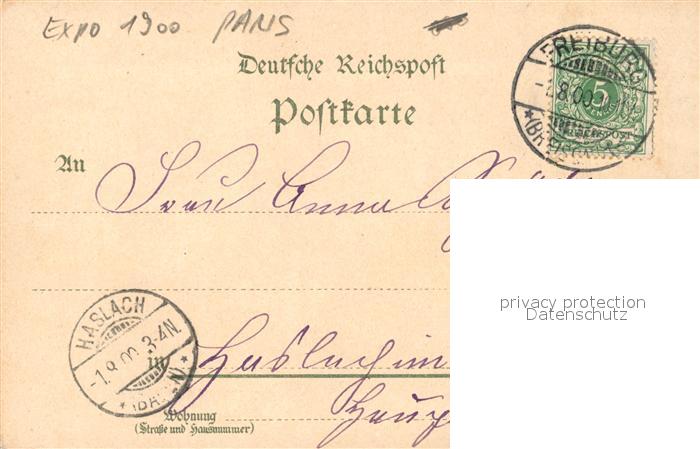 EXPO 1900 PARIS
Deutsche Reichspost
Postkarte
FREIBURG
-1.8.00
5
REICHSPOST
An
Frau Anna
privacy protection
Datenschutz
HASLACH
-1.8.00. 3-4N.
in Haslach im
Wohnung
(Straße und Hausnummer)
Haup